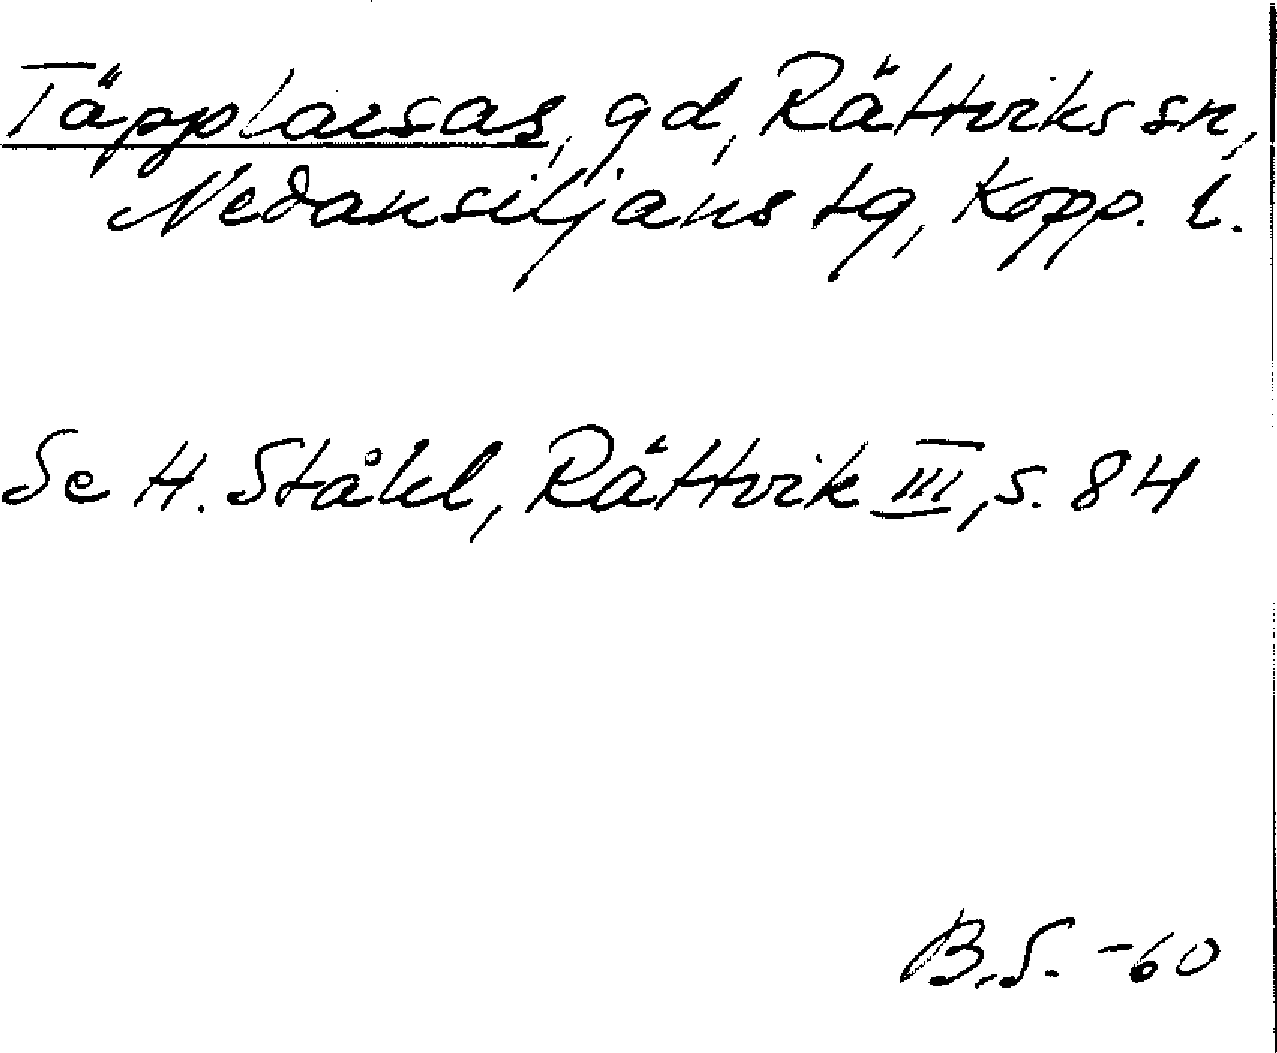 Täpplarsas, gd, Rättviks sn,
Nedansiljans tg, Kopp. l.
Se H. Ståhl, Rättvik III, s. 84
B.S. -60